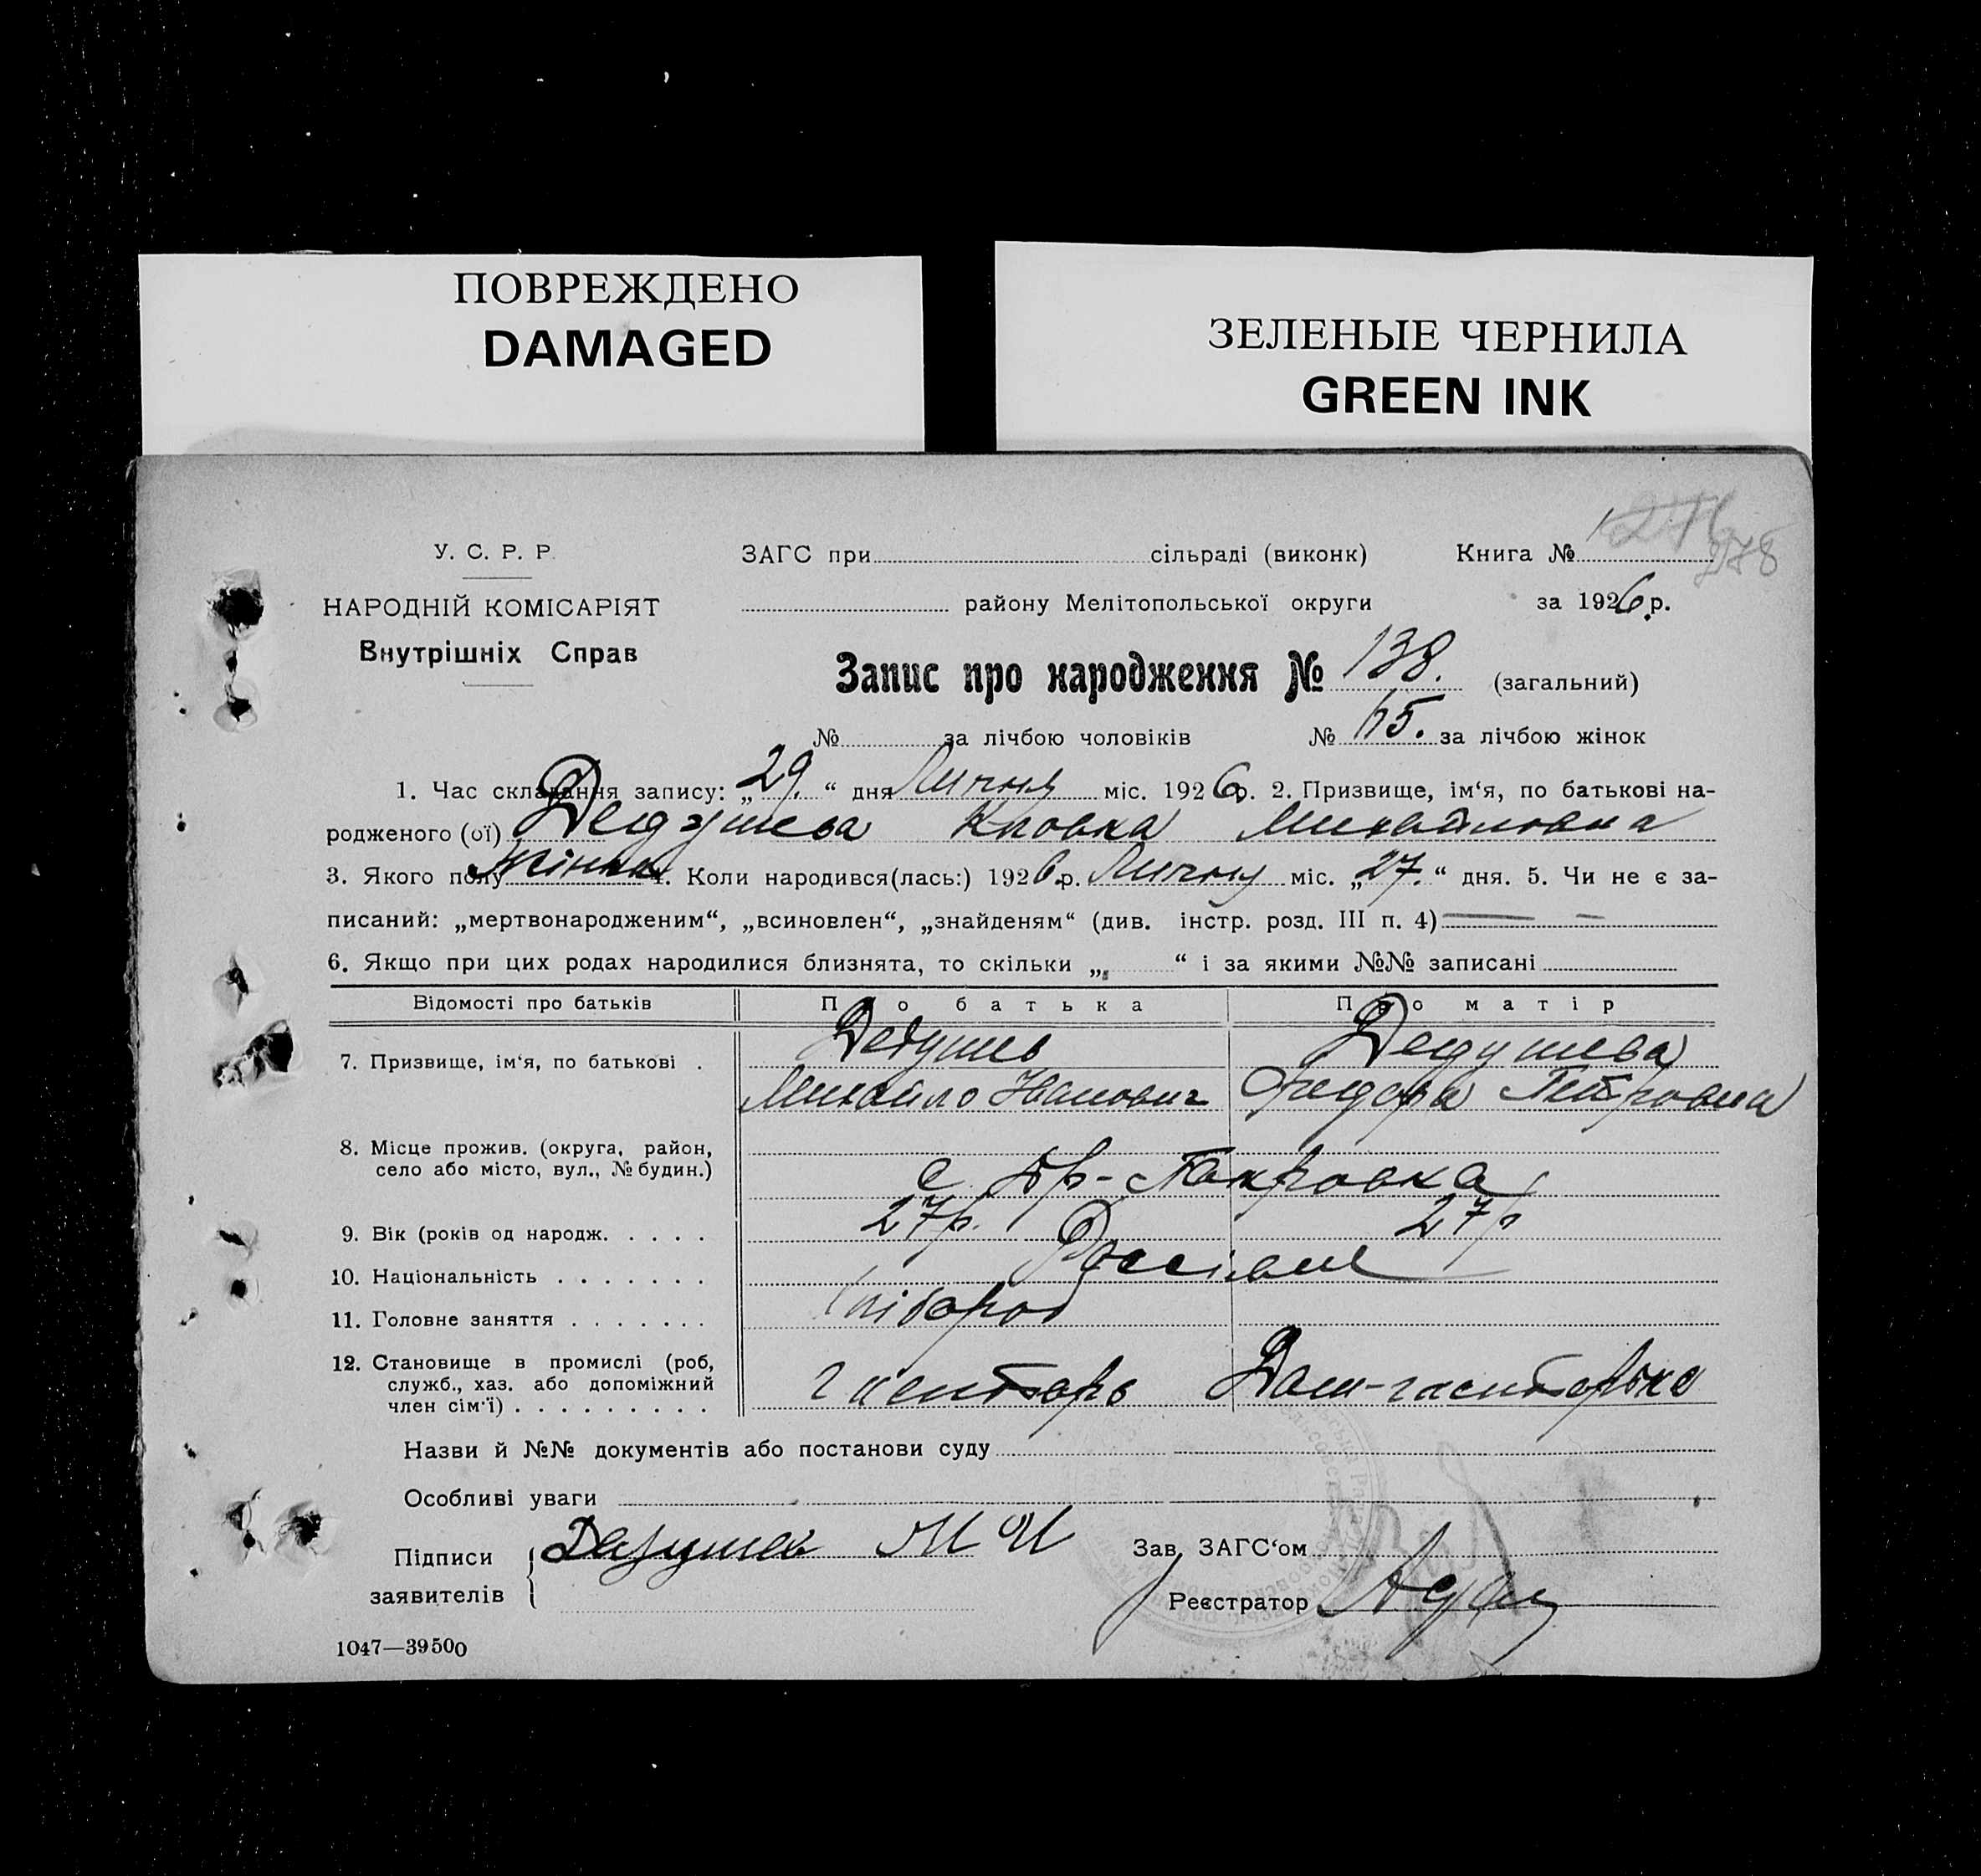 ПОВРЕЖДЕНО
DAMAGED
ЗЕЛЕНЫЕ ЧЕРНИЛА
GREEN INK
У. С. Р. Р.
НАРОДНІЙ КОМІСАРІЯТ
Внутрішніх Справ
ЗАГС при сільраді (виконк) Книга № 278
району Мелітопольської округи за 1926 р.
Запис про народження № 138. (загальний)
№ за лічбою чоловіків № 65. за лічбою жінок
1. Час складання запису: „29.“ дня Лютня міс. 1926 р. 2. Призвище, ім‘я, по батькові на-
родженого (ої) Дедушева Клавка Михайловна
3. Якого полу Жінка 4. Коли народився(лась:) 1926 р. міс. „27.“ дня. 5. Чи не є за-
писаний: „мертвонародженим“, „всиновлен“, „знайденям“ (див. інстр. розд. III п. 4)
6. Якщо при цих родах народилися близнята, то скільки „ “ і за якими №№ записані
Відомості про батьків Про батька Про матір
7. Призвище, ім‘я, по батькові . Дедушев Михайло Иванович Дедушева Федора Петровна
8. Місце прожив. (округа, район, село або місто, вул., № будин.) с. -Покровка
9. Вік (років од народж. . . . . 27р. 27р
10. Національність . . . . . . . Россіяне
11. Головне заняття . . . . . . . Хлібороб
12. Становище в промислі (роб, служб., хаз. або допоміжний член сім‘ї) . . . . . . . . .
Назви й №№ документів або постанови суду
Особливі уваги
Підписи заявителів Дедушев М И
Зав. ЗАГС‘ом
Реєстратор
1047—39500